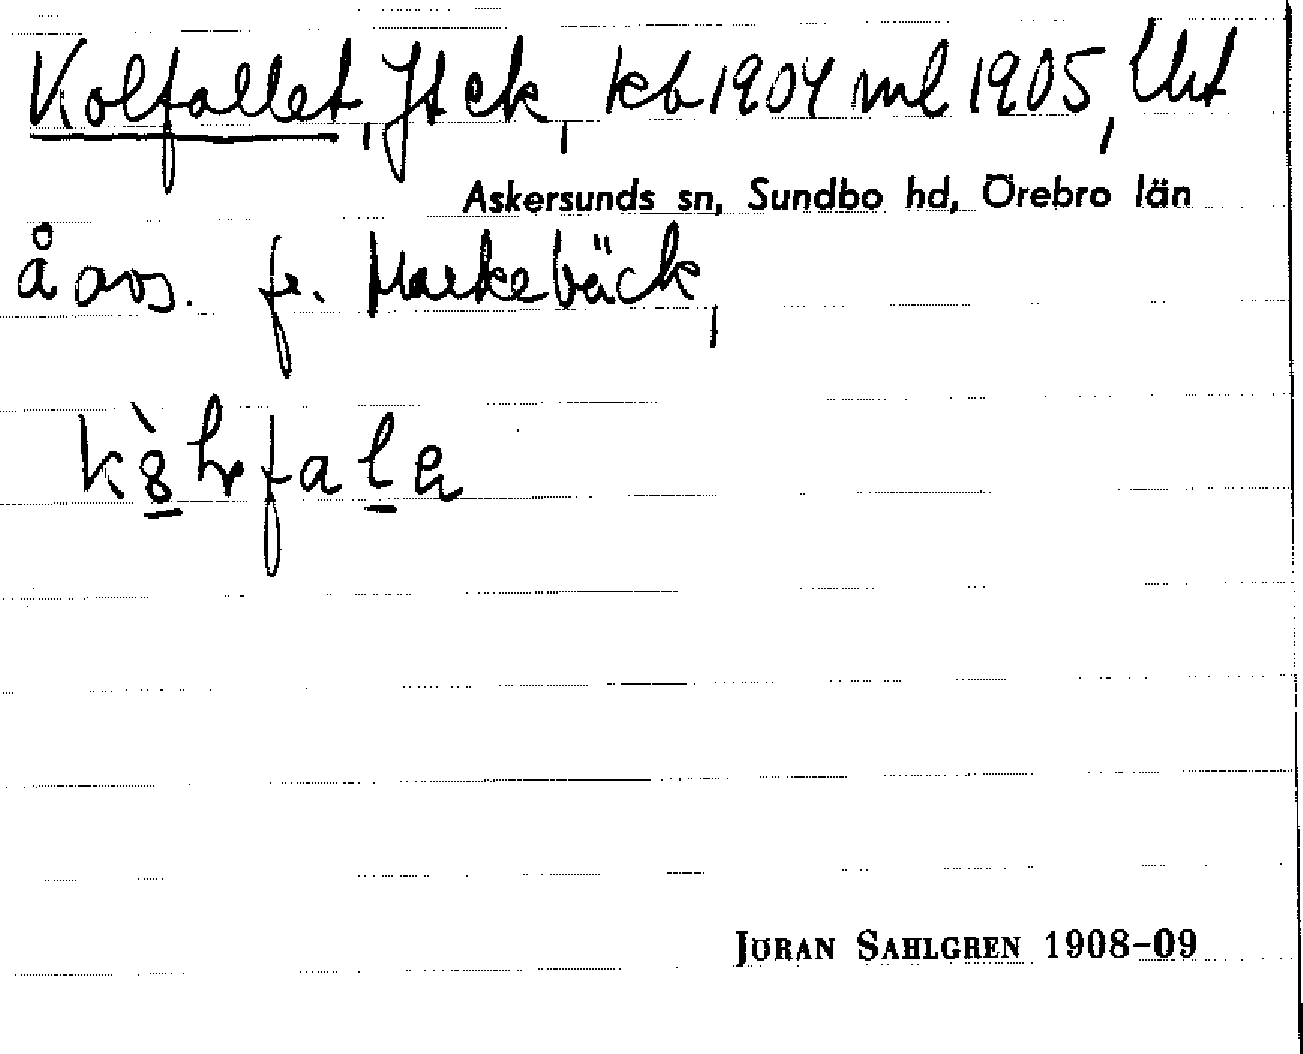 Kolfallet, Jt ek, kb 1904 ml 1905, Utt
Askersunds sn, Sundbo hd, Örebro län
å avs. fr. Markebäck,
JÖRAN SAHLGREN 1908-09